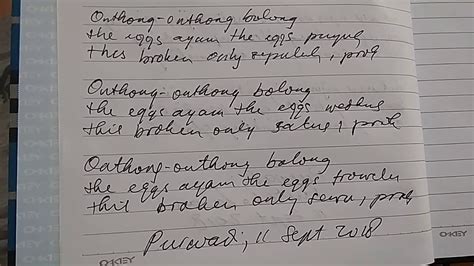 Onthong-onthong bolong
the eggs ayam the eggs puyuh
this broken only sepuluh, prok

Onthong-onthong bolong
the eggs ayam the eggs
this broken only satus, prok

Onthong-onthong bolong
the eggs ayam the eggs
this broken only sewu, prok
Purwadi, 11 Sept 2018
O-KEY
O-KEY
O-KEY